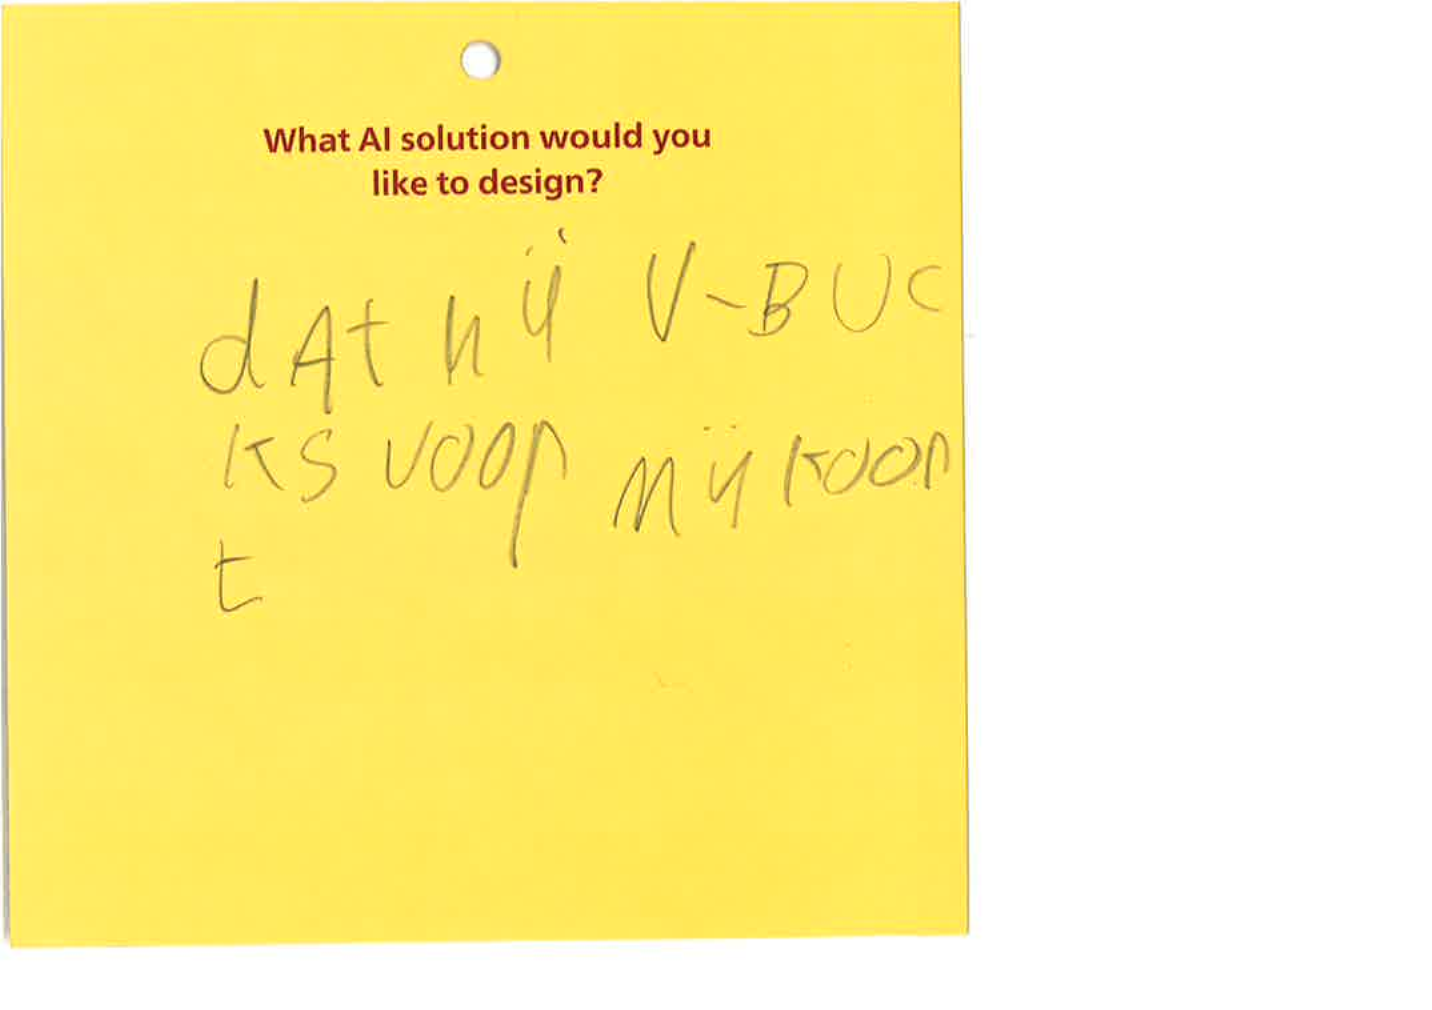 What AI solution would you
like to design?
dAt hij V-BUC
KS voor Mij koop
t